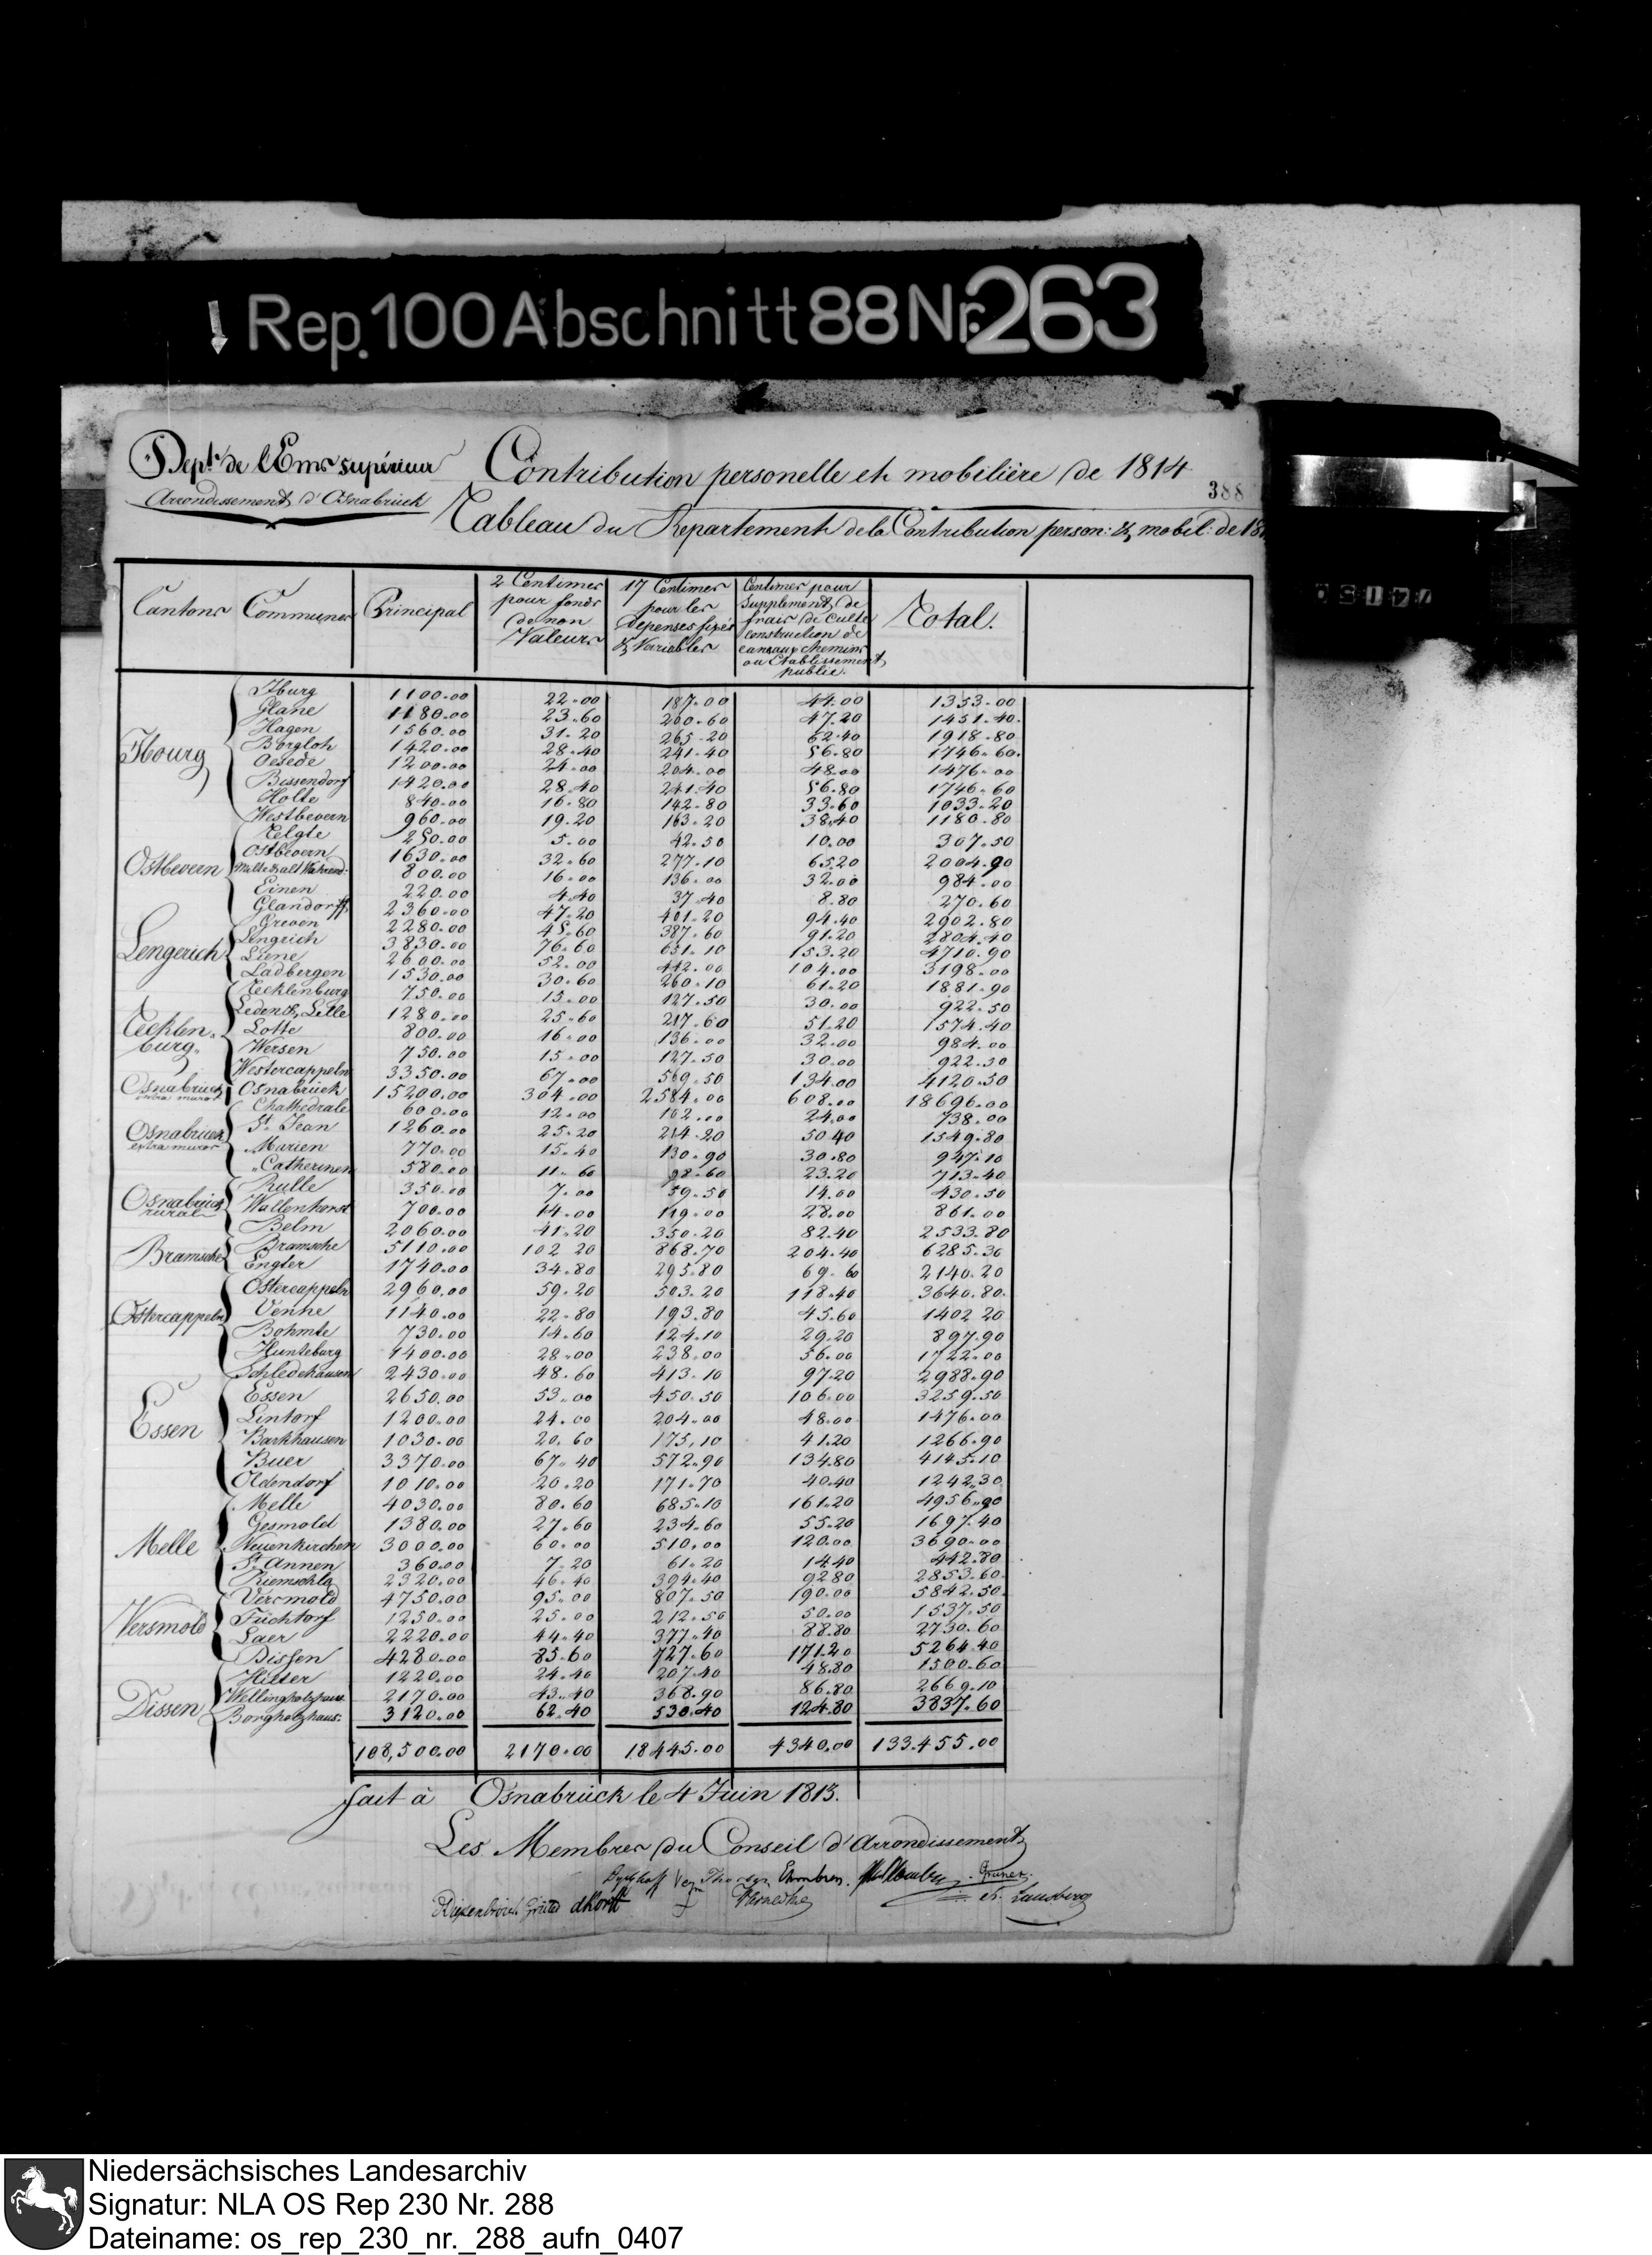 Rep. 100 Abschnitt 88 Nr. 263
Dept. de l'Ems supérieur Contribution personelle et mobilière de 1814
388
Arrondissement d'Osnabrück
Tableau du Repartement de la Contribution person: & mobil: de 18
Cantons Communes Principal 2 Centimes pour fonds de non Valeurs 17 Centimes pour les depenses fixés & Variables Centimes pour supplement de frais de Culte construction de canaux chemins ou Etablissement public. Total.
Ibourg Iburg 1100.00 22.00 187.00 44.00 1353.00
Glane 1180.00 23.60 200.60 47.20 1451.40.
Hagen 1560.00 31.20 265.20 62.40 1918.80
Borgloh 1420.00 28.40 241.40 56.80 1746.60.
Oesede 1200.00 24.00 204.00 48.00 1476.00
Bissendorf 1420.00 28.40 241.40 56.80 1746.60
Holte 840.00 16.80 142.80 33.60 1033.20
Westbevern 960.00 19.20 163.20 38.40 1180.80
Ostbevern Telgte 250.00 5.00 42.50 10.00 307.50
Ostbevern 1630.00 32.60 277.10 65.20 2004.90
800.00 16.00 136.00 32.00 984.00
Einen 220.00 4.40 37.40 8.80 270.60
Glandorff 2360.00 47.20 401.20 94.40 2902.80
Lengerich Greven 2280.00 45.60 387.60 91.20 2804.40
Lengrich 3830.00 76.60 651.10 153.20 4710.90
Liene 2600.00 52.00 442.00 104.00 3198.00
Ladbergen 1530.00 30.60 260.10 61.20 1881.90
Tecklenburg. Tecklenburg 750.00 15.00 127.50 30.00 922.50
Leden & Lette 1280.00 25.60 217.60 51.20 1574.40
Lotte 800.00 16.00 136.00 32.00 984.00
Wersen 750.00 15.00 127.50 30.00 922.50
Westercappeln 3350.00 67.00 569.50 134.00 4120.50
Osnabrück intra muros Osnabrück 15200.00 304.00 2584.00 608.00 18696.00
Osnabrück extra muros Chathedrale 600.00 12.00 102.00 24.00 738.00
St. Jean 1260.00 25.20 214.20 50.40 1549.80
Marien 770.00 15.40 130.90 30.80 947.10
Catherinen 580.00 11.60 98.60 23.20 713.40
Osnabrück rural Rulle 350.00 7.00 59.50 14.00 430.50
Wallenhorst 700.00 14.00 119.00 28.00 861.00
Belm 2060.00 41.20 350.20 82.40 2533.80
Bramsche Bramsche 5110.00 102 20 868.70 204.40 6285.30
Engter 1740.00 34.80 295.80 69.60 2140.20
Ostercappeln Ostercappeln 2960.00 59.20 503.20 118.40 3640.80.
Venne 1140.00 22.80 193.80 45.60 1402 20
Bohmte 730.00 14.60 124.10 29.20 897.90
Hunteburg 1400.00 28.00 238.00 56.00 1722.00
Schledehausen 2430.00 48.60 413.10 97.20 2988.90
Essen Essen 2650.00 53.00 450.50 106.00 3259.50
Lintorf 1200.00 24.00 204.00 48.00 1476.00
Barkhausen 1030.00 20.60 175,10 41.20 1266.90
Buer 3370.00 67.40 572.90 134.80 4145.10
Oldendorf 1010.00 20.20 171.70 40.40 1242.30
Melle Melle 4030.00 80.60 685.10 161.20 4956.90
Gesmold 1380.00 27.60 234.60 55.20 1697.40
Neuenkirchen 3000.00 60.00 510.00 120.00 3690.00
St. Annen 360.00 7.20 61.20 14.40 442.80
Riemschlo 2320.00 46.40 394.40 92 80 2853.60
Versmold Versmold 4750.00 95.00 807.50 190.00 5842.50
Füchtorf 1250.00 25.00 212.50 50.00 1537.50
Laer 2220.00 44.40 377.40 88.80 2730.60
Dissen Dissen 4280.00 85.60 727.60 171.20 5264.40
Hilter 1220.00 24.40 207.40 48.80 1500.60
Wellingholzhaus. 2170.00 43.40 368.90 86.80 2669.10
Borgholzhaus. 3120.00 62.40 530.40 124.80 3837.60
108,500.00 2170.00 18445.00 4340.00 133.455.00
fait à Osnabrück le 4 Juin 1813.
Les Membres du Conseil d'Arrondissement
Gruner.
Niedersächsisches Landesarchiv
Signatur: NLA OS Rep 230 Nr. 288
Dateiname: os_rep_230_nr._288_aufn_0407